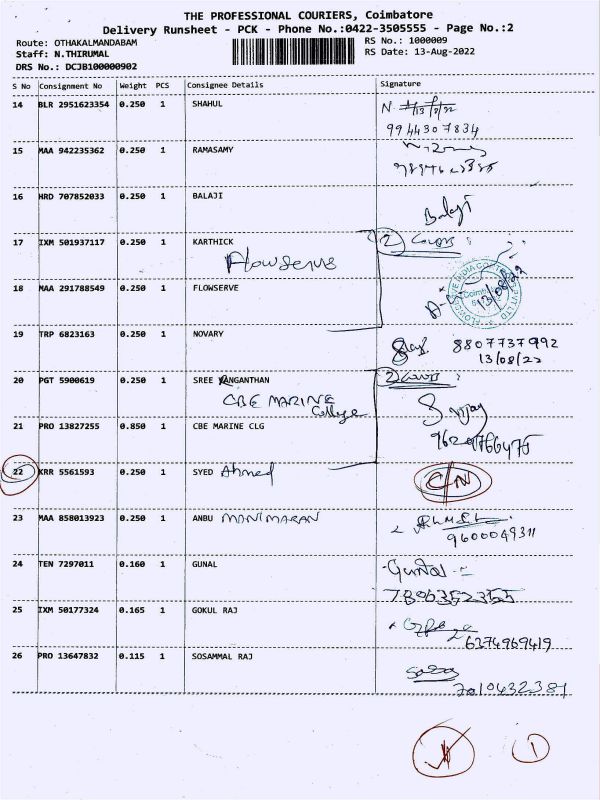 THE PROFESSIONAL COURIERS, Coimbatore
Delivery Runsheet - PCK - Phone No.:0422-3505555 - Page No.:2
Route: OTHAKALMANDABAM
RS No.: 1000009
Staff: N.THIRUMAL
RS Date: 13-Aug-2022
DRS No.: DCJB100000902
S No Consignment No Weight PCS Consignee Details Signature
14 BLR 2951623354 0.250 1 SHAHUL N
9944307834
15 MAA 942235362 0.250 1 RAMASAMY
16 HRD 707852033 0.250 1 BALAJI Balaji
17 IXM 501937117 0.250 1 KARTHICK 2 Covers
Flowserve
18 MAA 291788549 0.250 1 FLOWSERVE 13/08/22
19 TRP 6823163 0.250 1 NOVARY 8807737992
13/08/22
20 PGT 5900619 0.250 1 SREE RANGANTHAN 2 Covers
CBE MARINE
College
21 PRO 13827255 0.850 1 CBE MARINE CLG S. Vijay
22 KRR 5561593 0.250 1 SYED Ahmed C/N
23 MAA 858013923 0.250 1 ANBU MANIMARAN
9600049311
24 TEN 7297011 0.160 1 GUNAL Gunal
7806352355
25 IXM 50177324 0.165 1 GOKUL RAJ
6374969419
26 PRO 13647832 0.115 1 SOSAMMAL RAJ
7010432381
1